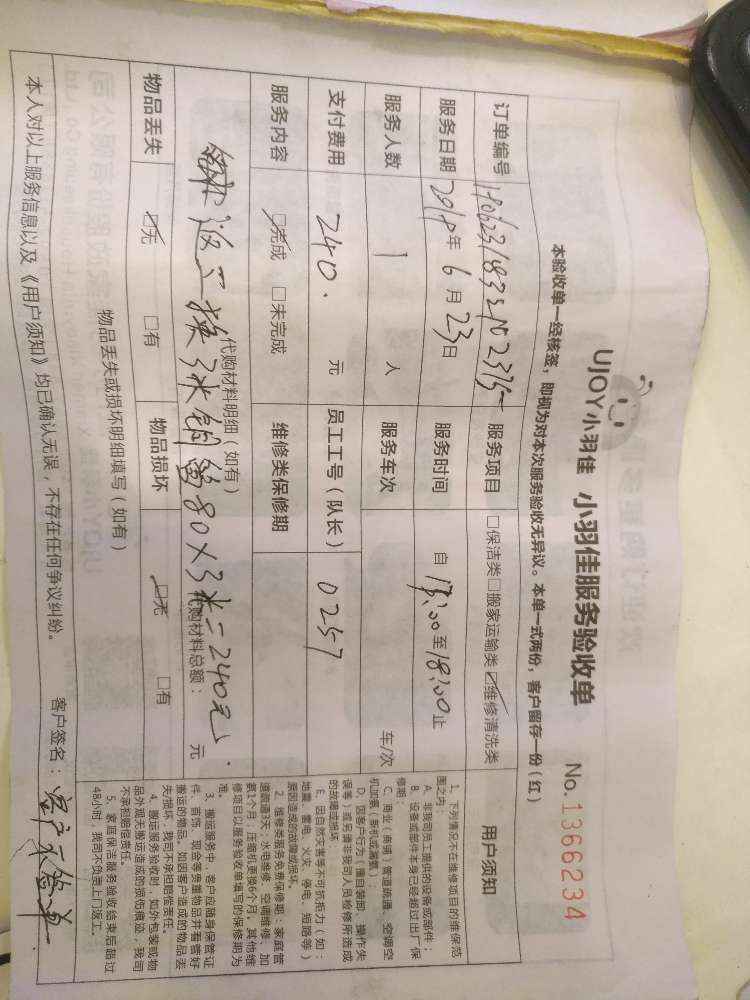 UJOY小羽佳 小羽佳服务验收单 No.1366234
本验收单一经核签，即视为对本次服务验收无异议。本单一式两份，客户留存一份（红）
订单编号 服务项目 □保洁类□搬家运输类☑维修清洗类
服务日期 2018年6月23日 服务时间 自17:00至18:00止
服务人数 1 人 服务车次 车/次
支付费用 240. 元 员工工号（队长） 0257
服务内容 ☑完成 □未完成 维修类保修期
代购材料明细（如有）
返工换3米铜管80×3米=240元. 代购材料总额： 元
物品丢失 ☑无 □有 物品损坏 ☑无 □有
物品丢失或损坏明细填写（如有）
本人对以上服务信息以及《用户须知》均已确认无误，不存在任何争议纠纷。 客户签名：
用户须知
1、下列情况不在维修项目的维保范
围之内：
A、非我司员工提供的设备或部件；
B、设备或部件本身已经超过出厂保
修期；
C、商业（商铺）管道疏通、空调空
机加氟（新机或漏氟）；
D、因客户行为（擅自装卸、操作失
误等）或另请非我司人员检修所造成
的故障或损坏
E、因自然灾害等不可抗拒力（如：
地震、雷电、火灾、停电、短路等）
原因造成的故障或损坏。
2、维修类服务免费保修期：家庭管
道疏通3天；水电维修、空调维修、加
氨1个月；压缩机更换6个月。其他维
修项目以服务验收单填写的保修期为
准。
3、搬运服务中，客户应随身保管证
件、首饰、现金等贵重物品并看管好
搬运的物品，如因客户造成的物品丢
失/损坏，我司不承担赔偿责任。
4、搬运服务验收时，如外包装或物
品外观无搬运造成的损伤痕迹，我司
不承担赔偿责任。
5、家庭保洁服务验收结束后超过
48小时，我司不负责上门返工。